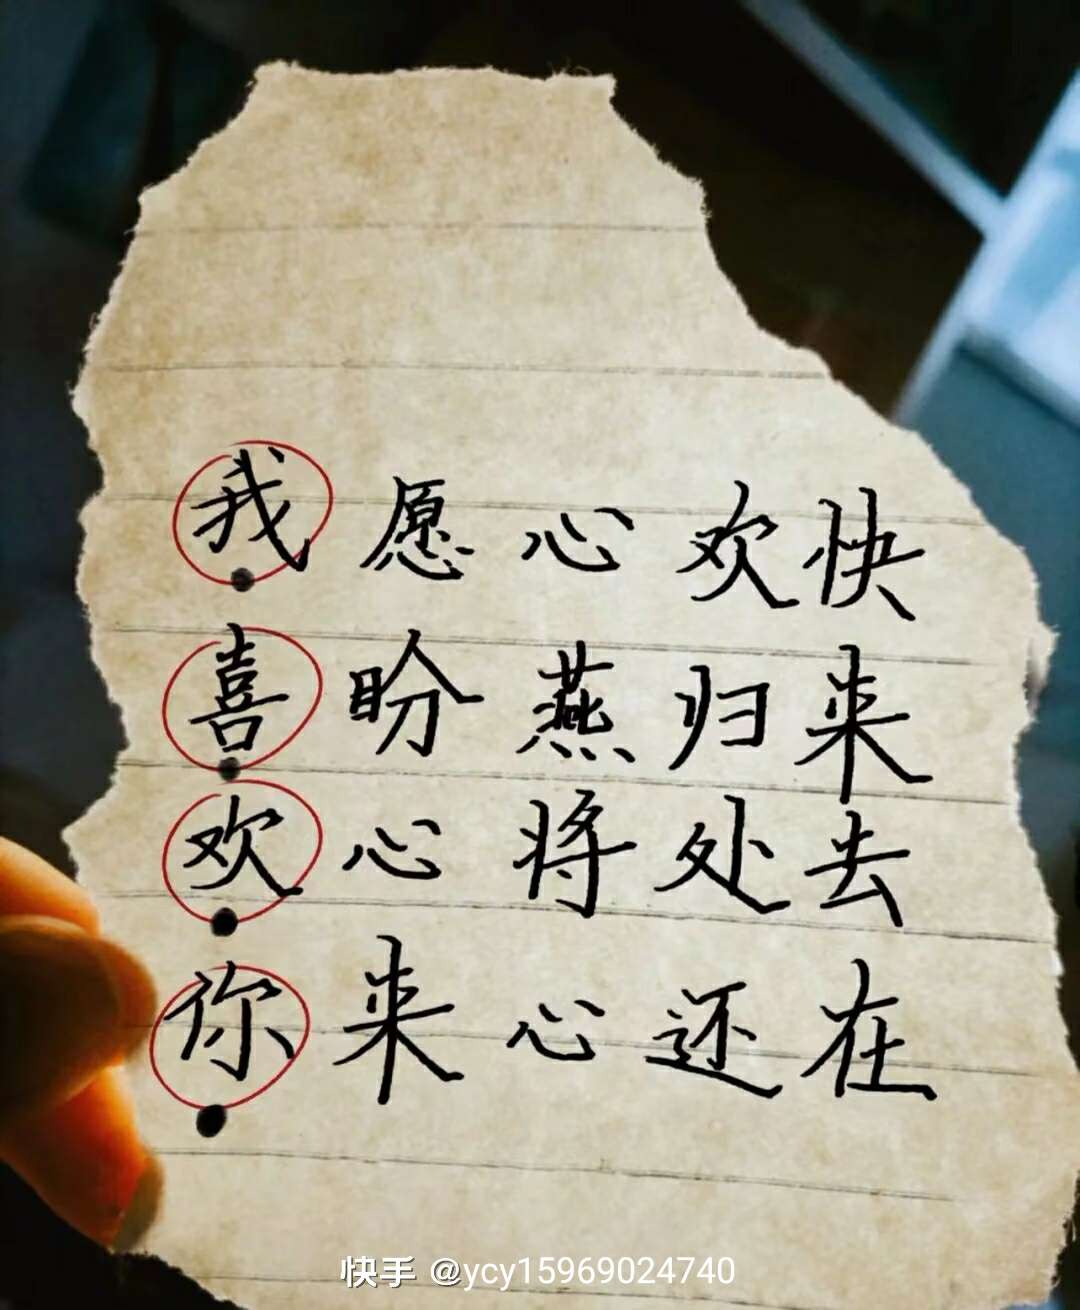 我愿心欢快
喜盼燕归来
欢心将处去
你来心还在
快手 @ycy15969024740